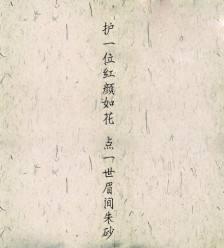 护一位红颜如花 点一世眉间朱砂